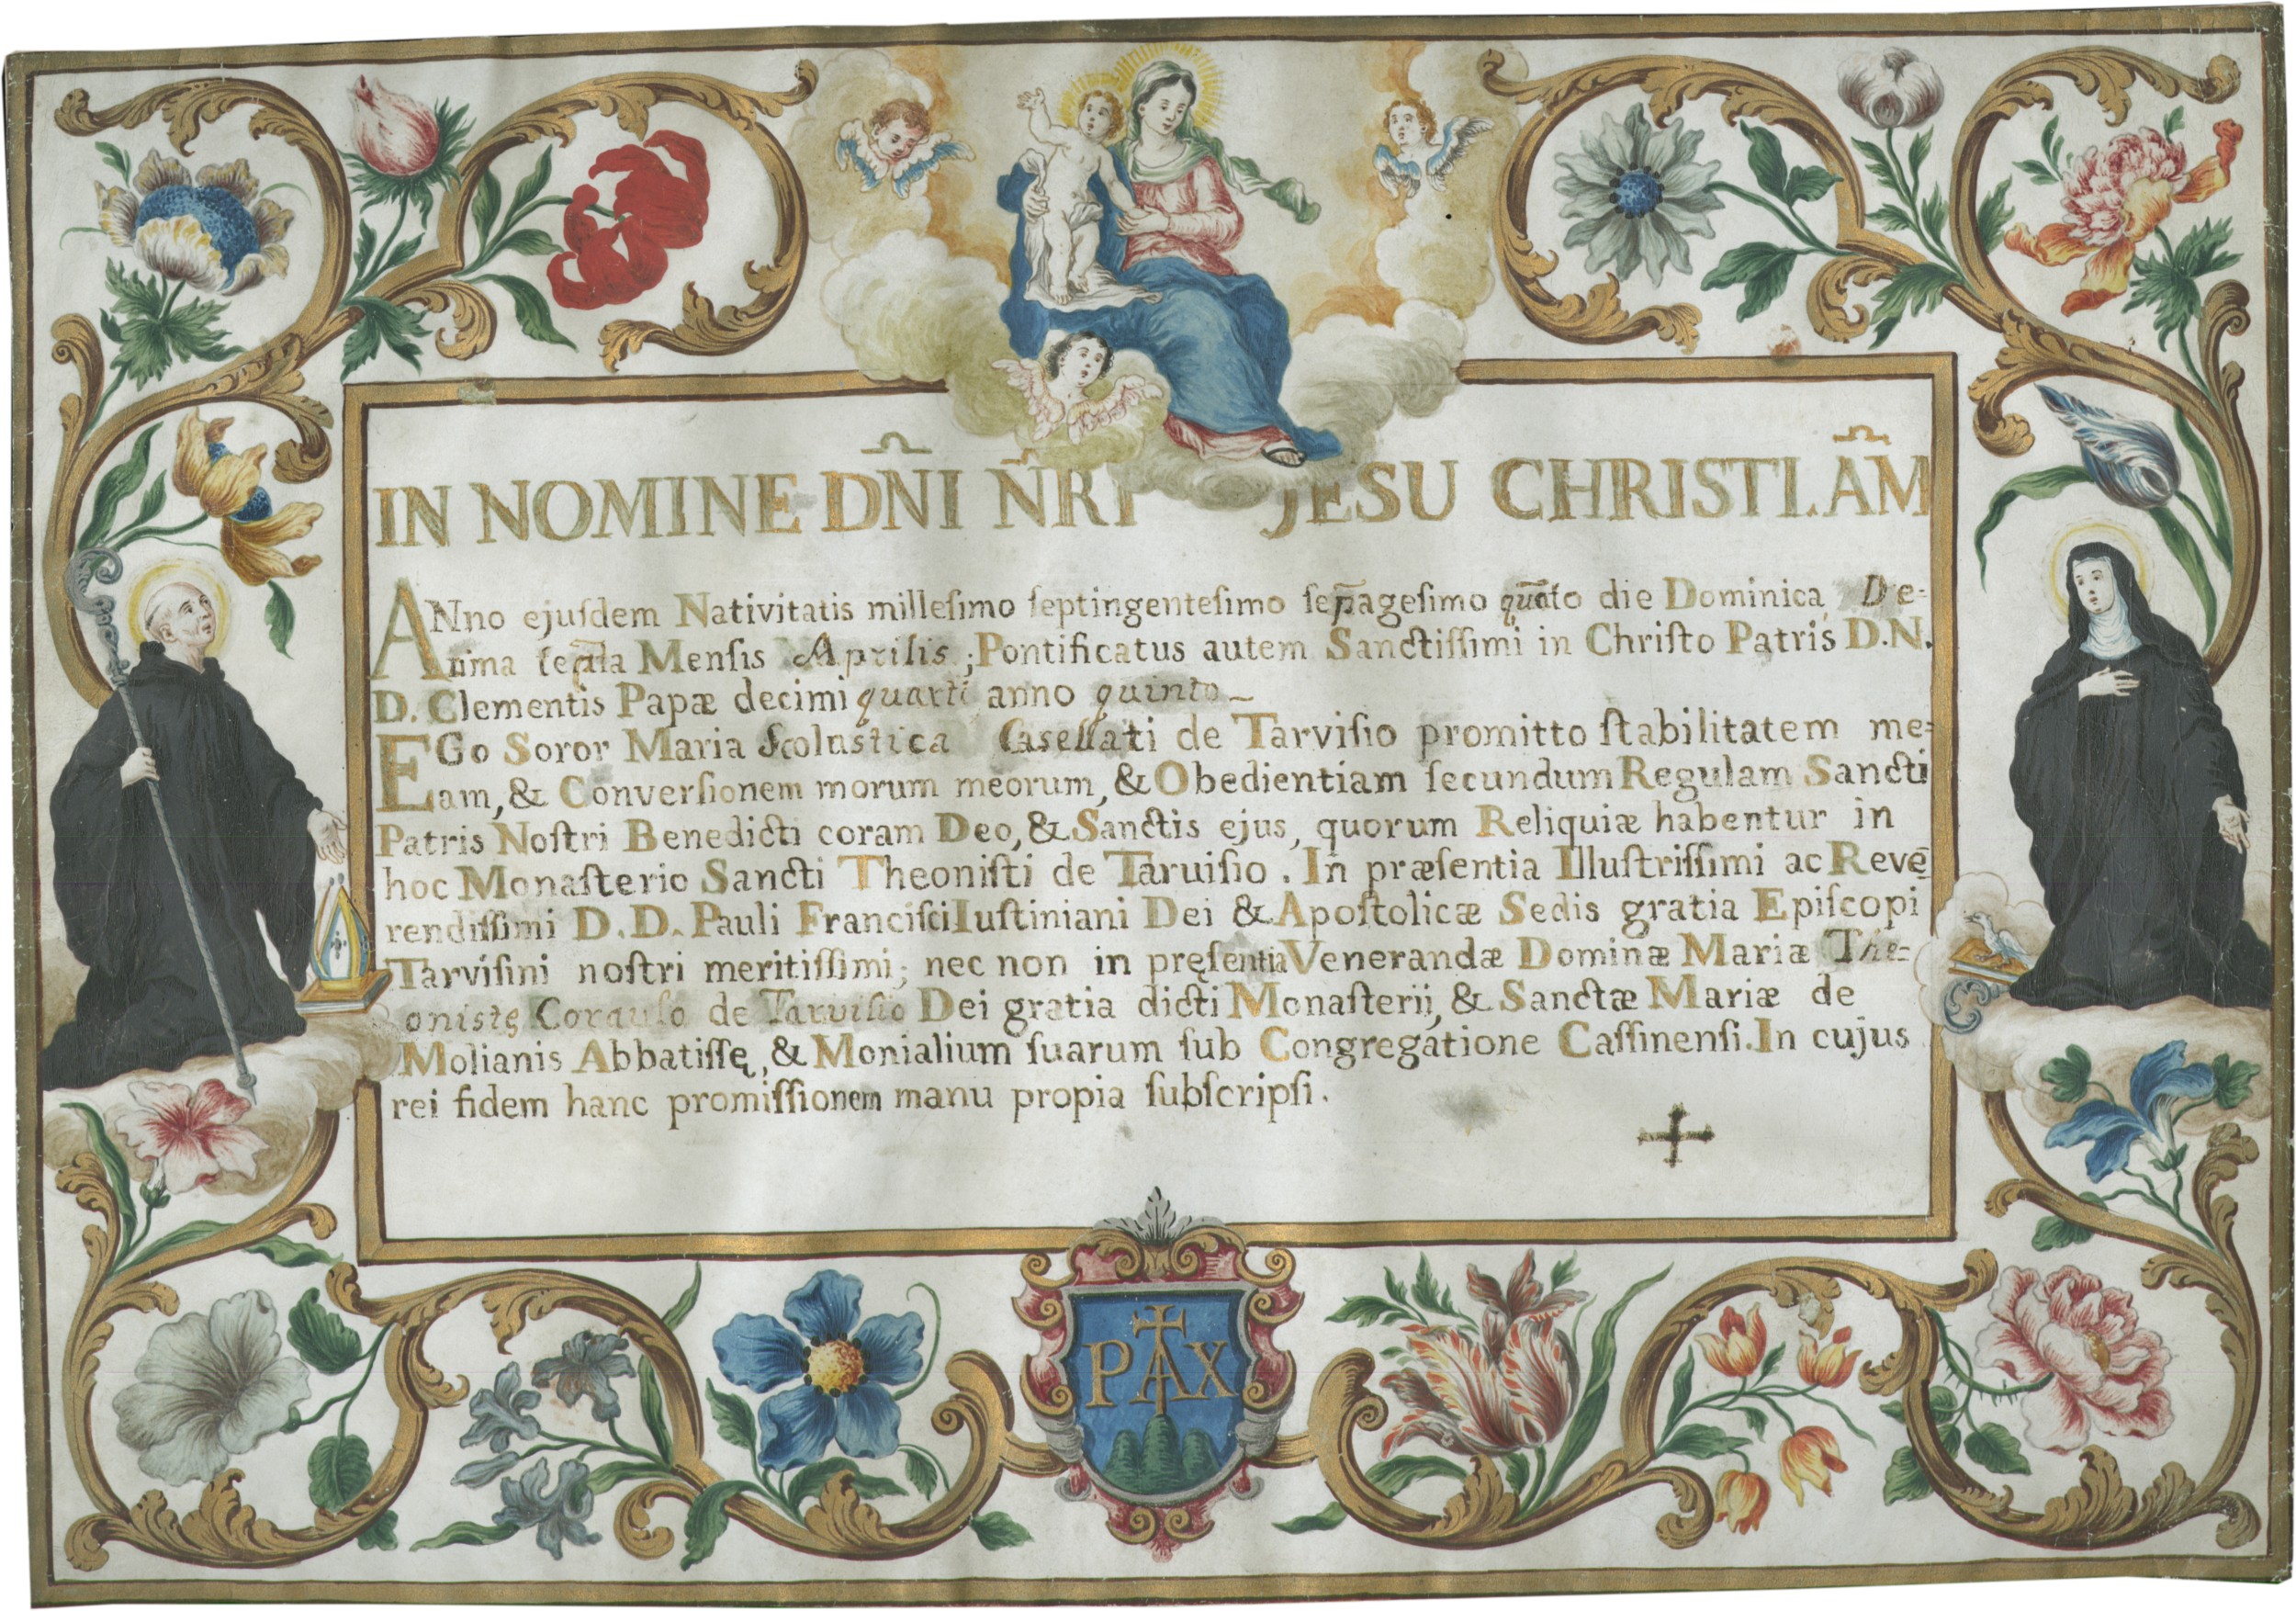 IN NOMINE DÑI ÑRI JESU CHRISTI. AM̄
ANno ejuſdem Nativitatis milleſimo ſeptingenteſimo ſep̄ageſimo die Dominica De=
Mensis Aprilis; Pontificatus autem Sanctiſſimi in Chriſto Patris D.N.
D. Clementis Papæ decimi quarti anno quinto_
EGo Soror Maria Scolastica Casellati de Tarviſio promitto ſtabilitatem me=
am, & Converſionem morum meorum, & Obedientiam ſecundum Regulam Sancti
Patris Noſtri Benedicti coram Deo, & Sanctis ejus, quorum Reliquiæ habentur in
hoc Monaſterio Sancti Theoniſti de Taruiſio. In præſentia Illuſtriſſimi ac Reve=
rendiſſimi D. D. Pauli Franciſci Iuſtiniani Dei & Apoſtolicæ Sedis gratia Epiſcopi
Tarviſini noſtri meritiſſimi; nec non in pręſentia Venerandæ Dominæ Mariæ The=
onistę de Tarviſio Dei gratia dicti Monaſterij, & Sanctæ Mariæ de
Molianis Abbatiſſę, & Monialium ſuarum ſub Congregatione Caſſinenſi. In cujus
rei fidem hanc promiſſionem manu propia ſubſcripſi.
PAX